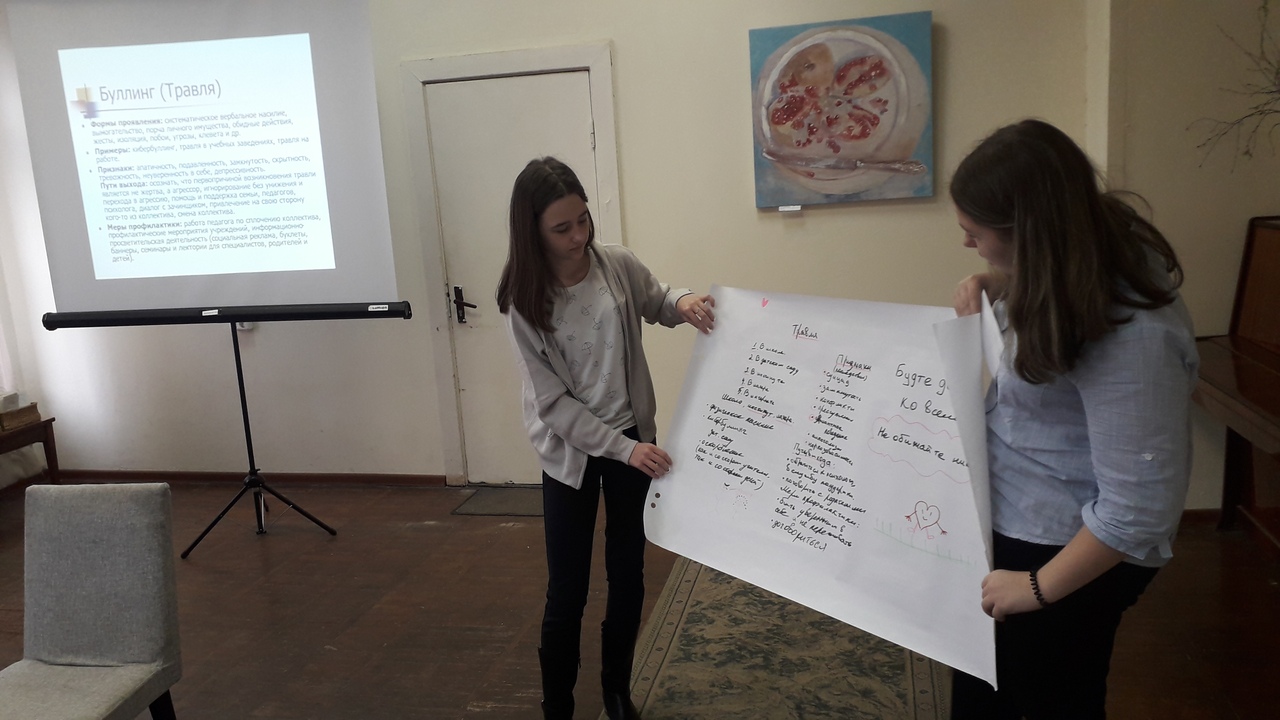 Буллинг (Травля)
Формы проявления: систематическое вербальное насилие,
вымогательство, порча личного имущества, обидные действия,
жесты, изоляция, побои, угрозы, клевета и др.
Примеры: кибербуллинг, травля в учебных заведениях, травля на
работе.
Признаки: апатичность, подавленность, замкнутость, скрытность,
тревожность, неуверенность в себе, депрессивность.
Пути выхода: осознать, что первопричиной возникновения травли
является не жертва, а агрессор, игнорирование без унижения и
перехода в агрессию, помощь и поддержка семьи, педагогов,
психолога, диалог с зачинщиком, привлечение на свою сторону
кого-то из коллектива, смена коллектива.
Меры профилактики: работа педагога по сплочению коллектива,
профилактические мероприятия учреждений, информационно-
просветительская деятельность (социальная реклама, буклеты,
баннеры, семинары и лектории для специалистов, родителей и
детей).
Травля
1. В школе
2. В детском саду
физическое насилие
кибербуллинг
Признаки
суицид
замкнутость
Пути выхода:
поговорить с родителями
Меры профилактики:
быть уверенным в
себе и не
договориться
Будте д
ко всем
Не обижайте